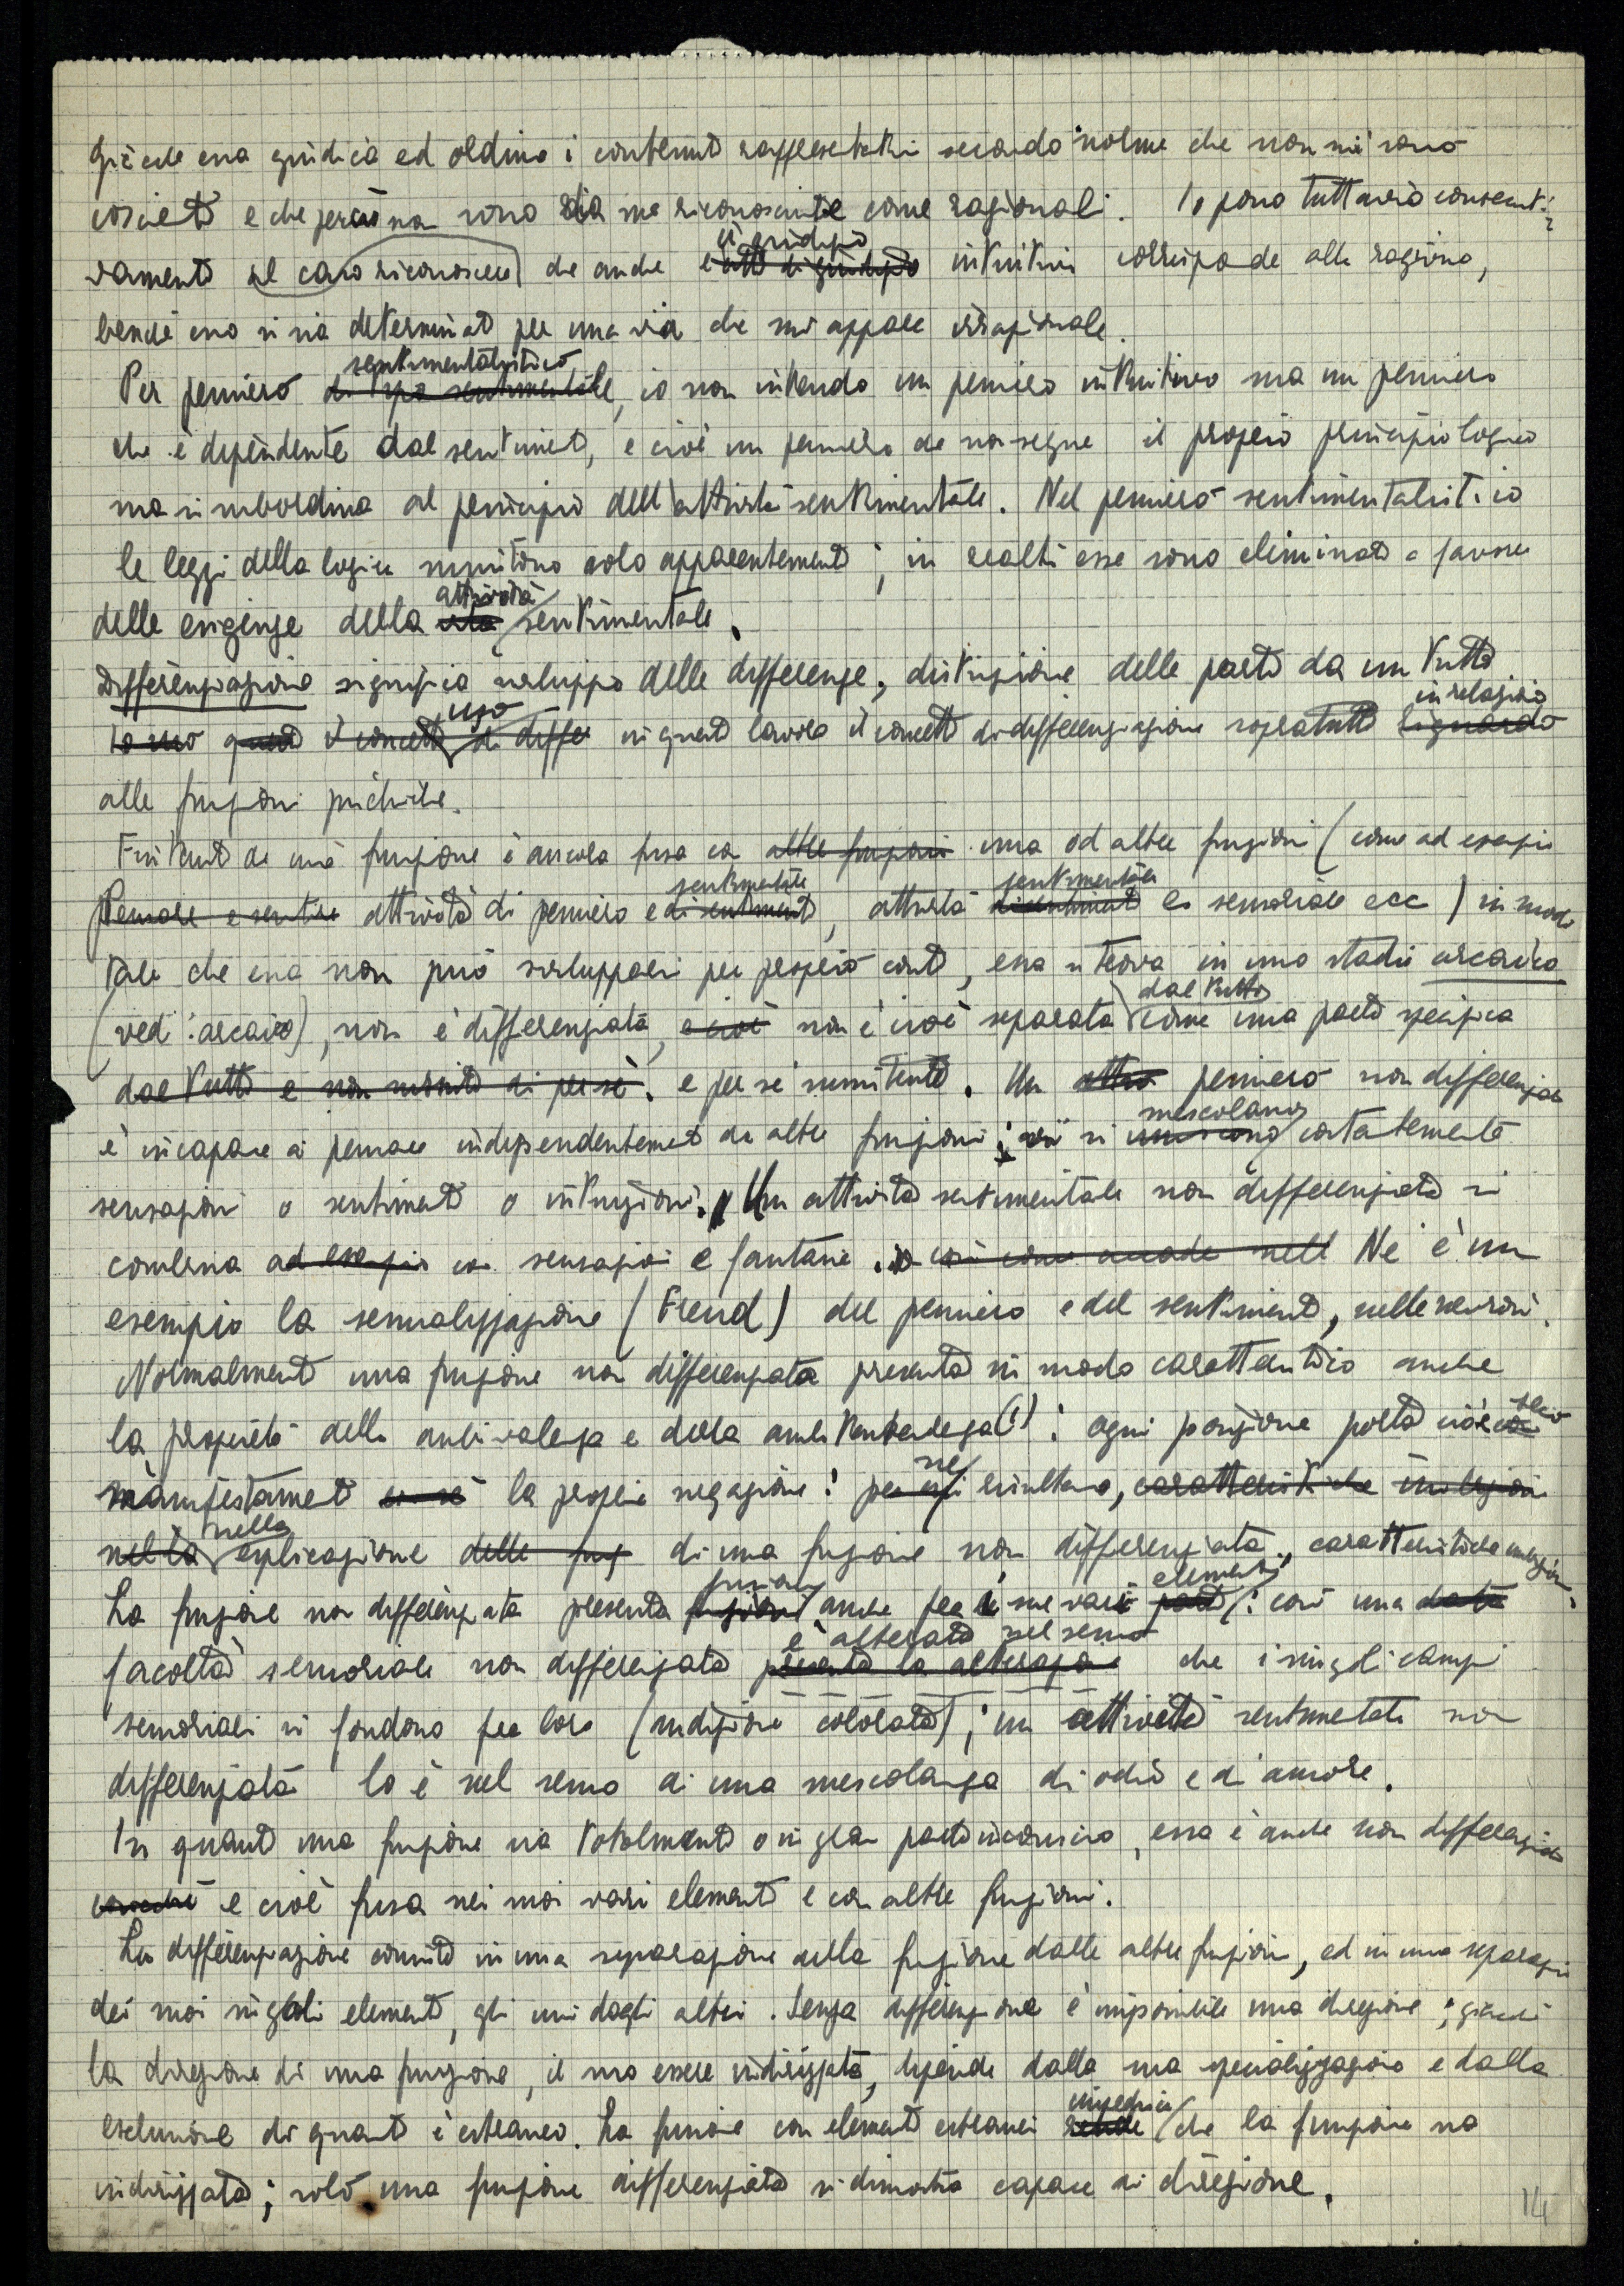 giacchè essa giudica ed ordina i contenuti rappresentativi secondo norme che non mi sono
coscienti e che perciò non sono da me riconosciute come ragionali. Io posso tuttavia consecuti-
vamente al caso riconoscere che anche il giudizio intuitivo corrisponde alla ragione,
benchè esso si sia determinato per una via che mi appare irrazionale.
Per pensiero sentimentalistico, io non intendo un pensiero intuitivo ma un pensiero
che è dipendente dal sentimento, e cioè un pensiero che non segue il proprio principio logico
ma si subordina al principio dell'attività sentimentale. Nel pensiero sentimentalistico
le leggi della logica sussistono solo apparentemente; in realtà esse sono eliminate a favore
delle esigenze della attività sentimentale.
Differenziazione significa sviluppo delle differenze, distinzione delle parti da un tutto
uso in questo lavoro il concetto di differenziazione sopratutto in relazione
alle funzioni psichiche.
Fintanto che una funzione è ancora fusa con una od altre funzioni (come ad esempio
attività di pensiero e sentimentale, attività sentimentale e sensoriale ecc) in modo
tale che essa non può svilupparsi per proprio conto, essa si trova in uno stadio arcaico
(vedi: arcaico), non è differenziata, non è cioè separata dal tutto come una parte specifica
e per sè sussistente. Un pensiero non differenziato
è incapace di pensare indipendentemente da altre funzioni; si mescolano costantemente
sensazioni o sentimenti o intuizioni. Un attività sentimentale non differenziata si
combina con sensazioni e fantasie. Ne è un
esempio la sessualizzazione (Freud) del pensiero e del sentimento, nelle nevrosi.
Normalmente una funzione non differenziata presenta in modo caratteristico anche
la proprietà della ambivalenza e della ambitendenza(1): ogni posizione porta cioè seco
manifestamente la propria negazione: ne risultano,
nella esplicazione di una funzione non differenziata, caratteristiche inibizioni.
La funzione non differenziata presenta fusioni anche fra i sue vari elementi: così una
facoltà sensoriale non differenziata è alterata nel senso che i singoli campi
sensoriali si fondono fra loro (audizione colorata); un attività sentimentale non
differenziata lo è nel senso di una mescolanza di odio e d'amore.
In quanto una funzione sia totalmente o in gran parte inconscia, essa è anche non differenziata
e cioè fusa nei suoi vari elementi e con altre funzioni.
La differenziazione consiste in una separazione della funzione dalle altre funzioni, ed in una separazione
dei suoi singoli elementi, gli uni dagli altri. Senza differenziazione è impossibile una direzione; giacchè
la direzione di una funzione, il suo essere indirizzata, dipende dalla sua specializzazione e dalla
esclusione di quanto è estraneo. La fusione con elementi estranei impedisce che la funzione sia
indirizzata; solo una funzione differenziata si dimostra capace di direzione.
14